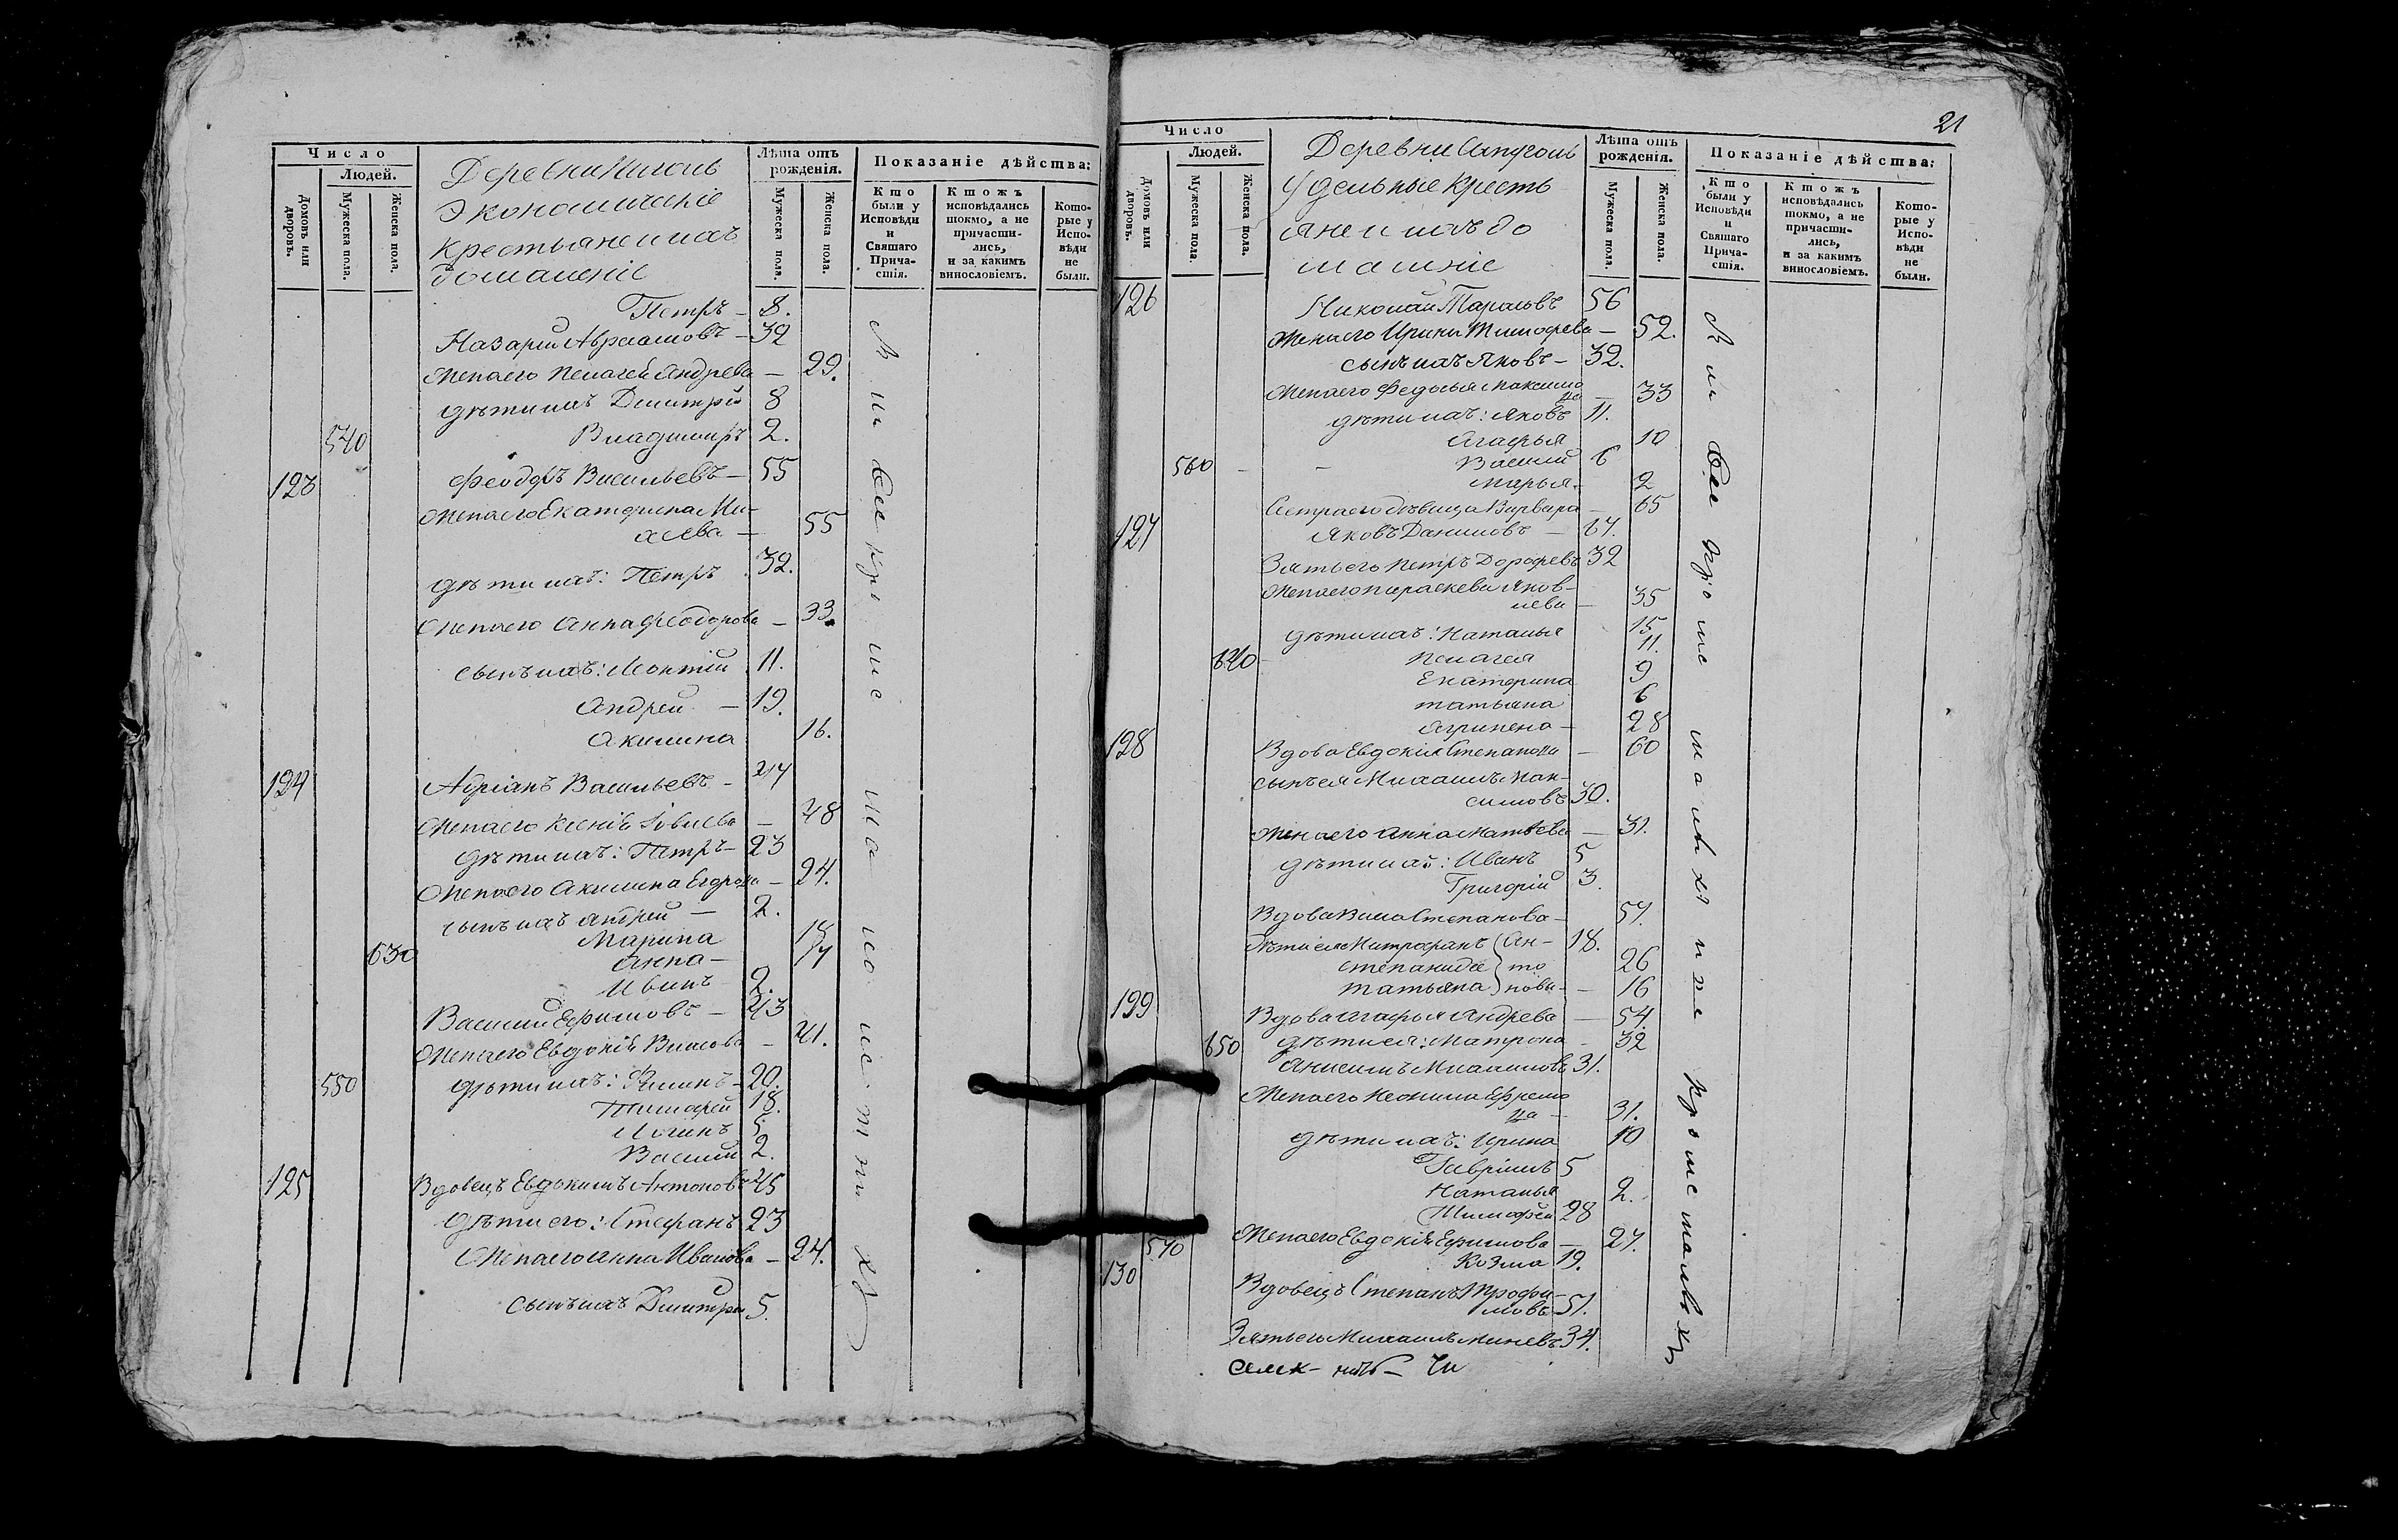 Число
Людей.
Домовъ или дворовъ.
Мужеска пола.
Женска пола.
Деревни
Экономическіе
крестьяне и ихъ
домашніе
Лѣта отъ рожденія.
Мужеска пола.
Женска пола.
Показаніе дѣйства:
Кто были у Исповѣди и Святаго Причастія.
Ктожъ исповѣдались токмо, а не причастились, и за какимъ винословіемъ.
Которые у Исповѣди не были.
Петръ - 8.
Назарій Авраамовъ - 32
Жена его Пелагея Андрева - 29.
дѣти ихъ Дмитрій 8
540 Владимиръ 2.
123 Феодоръ Васильевъ - 55
Жена его Екатерина Ми-
хаева - 55
дѣти ихъ: Петръ 32.
Жена его Анна Феодорова - 33.
сынъ ихъ: Леонтій 11.
Андрей - 19.
Акилина 16.
124 Адріанъ Васильевъ - 47
Жена его Ксенія - 48
дѣти ихъ: Петръ - 23
Жена его Акилина - 24.
сынъ ихъ Андрей - 2.
Марина
630 Анна -
Иванъ 2.
Василий Ефимовъ - 43
Жена его Евдокія Власова - 41.
550 дѣти ихъ: - 20.
Тимофей 18.
Логинъ 5.
Василий 2.
125 Вдовецъ Евдокимъ Антоновъ 45
дѣти его: Стефанъ 23
Жена его Анна Иванова - 24.
сынъ ихъ Дмитрій 5.
21
Число
Людей.
Домовъ или дворовъ.
Мужеска пола.
Женска пола.
Деревни
Удельные Кресть
яне и ихъ до
машніе
Лѣта отъ рожденія.
Мужеска пола.
Женска пола.
Показаніе дѣйства:
Кто были у Исповѣди и Святаго Причастія.
Ктожъ исповѣдались токмо, а не причастились, и за какимъ винословіемъ.
Которые у Исповѣди не были.
126 Николай Тарасовъ 56
Жена его Ирина Тимофева - 52.
сынъ ихъ Яковъ - 32.
Жена его Федосья Максимо
ва - 33
дѣти ихъ: Яковъ 11.
Агафья 10
560 - - Василий 6
Марья - 2
Сестра его дѣвица Варвара - 65
127 Яковъ Даниловъ - 67.
Зять его Петръ Дорофевъ 32
Жена его Параскева Яков-
лева - 35
дѣти ихъ: Наталья 15
640 - Пелагея 11.
Екатерина 9
Татьяна 6
Агрипена - 28
128 Вдова Евдокия Степанова - 60
сынъ ея Михаилъ Мак-
симовъ 30.
Жена его Анна Матвева - 31.
дѣти ихъ: Иванъ 5
Григорій 3.
Вдова Степанова - 57.
дѣти ея Митрофанъ (Ан- 18.
Степанида) то 26
Татьяна) нова - 16
129 Вдова Агафья Андрева - 54.
650 дѣти ея: Матрона - 32
Анисимъ Михаиловъ 31.
Жена его Неонила Ефремо
ва - 31.
дѣти ихъ: Ирина 10
Гавріилъ 5
Наталья 2.
Тимофей 28
570 Жена его Евдокія Ефимова - 27.
Козма 19.
130 Вдовецъ Степанъ Трофи-
мовъ - 51.
Зять его Михаилъ Миневъ 34.